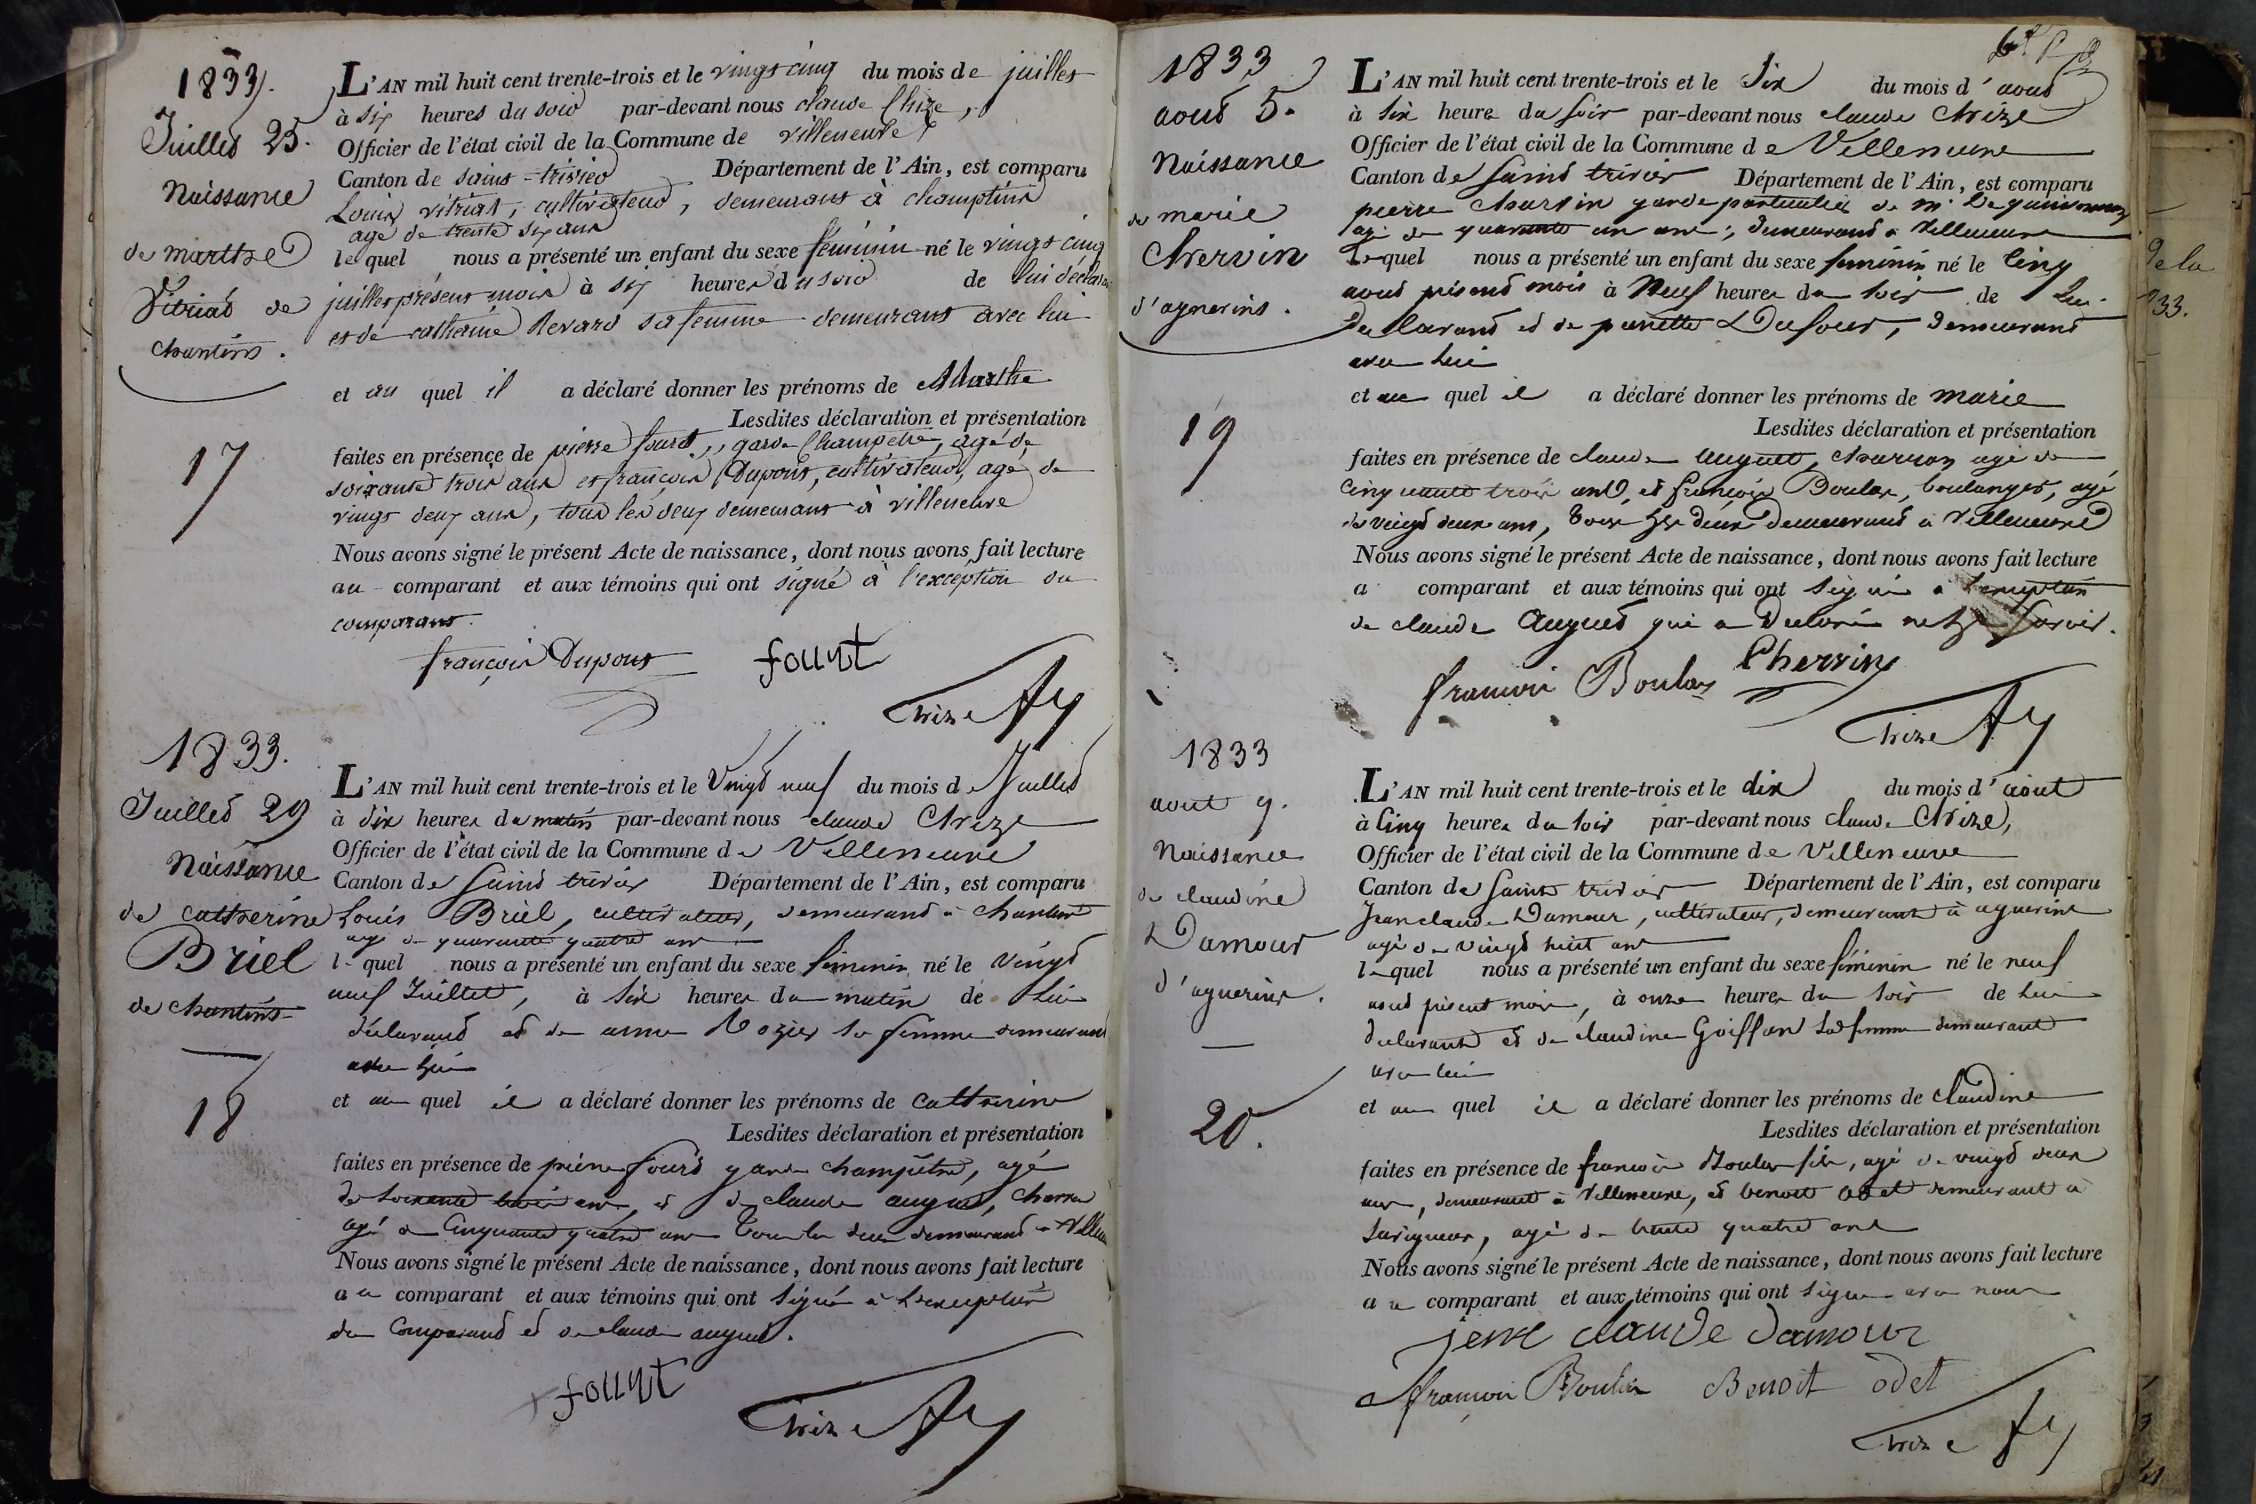 1833.
Juilled 25.
Naissance
de marthe
Vitriat de
chantins.
17
L'AN mil huit cent trente-trois et le vingt cinq du mois de juillet
à six heures du soir par-devant nous claude Chize,
Officier de l'état civil de la Commune de villeneuve
Canton de saint-trivier Département de l'Ain, est comparu
Louis vitriat, cultivateur, demeurant à champtins
agé de trente six ans
lequel nous a présenté un enfant du sexe féminin né le vingt cinq
juillet présent mois à six heures du soir de lui déclarant
et de catherine Revard sa femme demeurant avec lui
et au quel il a déclaré donner les prénoms de Marthe
Lesdites déclaration et présentation
faites en présence de pierre fourt, garde Champetre, agé de
soixante trois ans et françois Dupont, cultivateur, agé de
vingt deux ans, tous les deux demeurant à villeneuve
Nous avons signé le présent Acte de naissance, dont nous avons fait lecture
au comparant et aux témoins qui ont signé à l'exception du
comparant.
françois Dupont fount
Chize
1833.
Juilled 29
Naissance
de catherine
Briel
de chantins
18
L'AN mil huit cent trente-trois et le Vingt neuf du mois de Juilled
à dix heures du matin par-devant nous claude Chize
Officier de l'état civil de la Commune de Villeneuve
Canton de Saint trivier Département de l'Ain, est comparu
Louis Briel, cultivateur, demeurand à chantins
agé de quarante quatre ans
lequel nous a présenté un enfant du sexe féminin né le Vingt
neuf Juillet, à six heures du matin de lui
déclarand et de anne Rozier sa femme demeurand
avec lui
et au quel il a déclaré donner les prénoms de Catherine
Lesdites déclaration et présentation
faites en présence de pierre fourd garde champêtre, agé
de soixante trois ans, et de claude augued, charron
agé de Cinquante quatre ans tous les deux demeurand à Villeneuve
Nous avons signé le présent Acte de naissance, dont nous avons fait lecture
au comparant et aux témoins qui ont signé à l'exception
du Comparand et de claude augued.
fount
Chize
1833
aoud 5.
Naissance
de marie
Chervin
d'agnerins.
19
L'AN mil huit cent trente-trois et le Six du mois d'aoud
à six heure du soir par-devant nous claude Chize
Officier de l'état civil de la Commune de Villeneuve
Canton de Saind trivier Département de l'Ain, est comparu
pierre Chervin garde particulier de mr
agé de quarante un ans, demeurand à Villeneuve
Lequel nous a présenté un enfant du sexe feminin né le Cinq
aoud présend mois à Neuf heures du soir de lui
declarand et de pierrette Dufour, demeurand
avec lui
et au quel il a déclaré donner les prénoms de marie
Lesdites déclaration et présentation
faites en présence de claude auguet, charron agé de
Cinquante trois ans, et françois Boulas, boulanger, agé
de vingd deux ans, tous les deux demeurand à Villeneuve
Nous avons signé le présent Acte de naissance, dont nous avons fait lecture
a comparant et aux témoins qui ont signé à l'exception
de claude Augued qui a declaré ne le savoir.
francoi Boulas Chervin
Chize
1833
aout 9.
Naissance
de claudine
Damour
d'aguerins.
20.
L'AN mil huit cent trente-trois et le dix du mois d'aout
à Cinq heures du soir par-devant nous claude Chize,
Officier de l'état civil de la Commune de Villeneuve
Canton de Saint trivier Département de l'Ain, est comparu
Jean claude Damour, cultivateur, demeurant à aguerins
agé de vingt huit ans
lequel nous a présenté un enfant du sexe féminin né le neuf
aoud présent mois, à onze heures du soir de lui
declarant et de claudine Goiffon sa femme demeurant
avec lui
et au quel il a déclaré donner les prénoms de Claudine
Lesdites déclaration et présentation
faites en présence de françois Boulas fils, agé de vingd deux
ans, demeurant à Villeneuve, et benoit odet demeurant à
Savigneux, agé de trente quatre ans
Nous avons signé le présent Acte de naissance, dont nous avons fait lecture
au comparant et aux témoins qui ont signé avec nous
jean claude damour
françoi Boulas Benoit odet
Chize
de la
33.